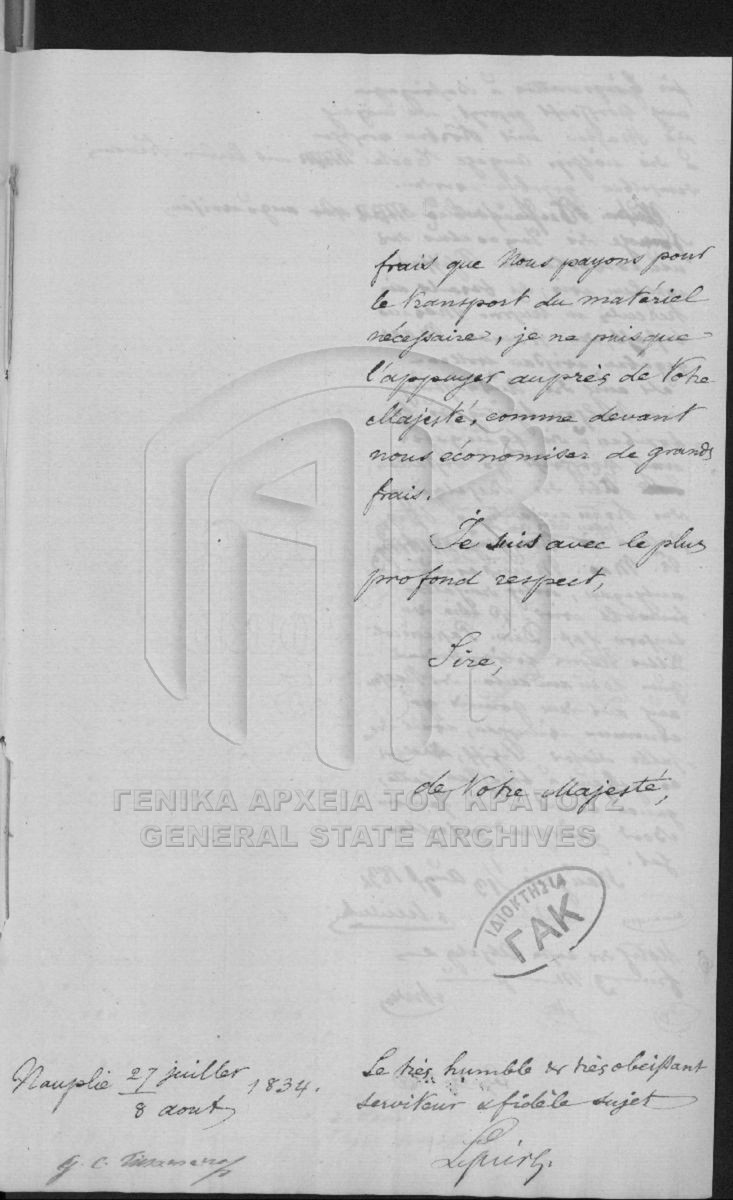 frais que Nous payons pour
le transport du matériel
nécessaire, je ne puis que
l'appuyer auprès de Votre
Majesté, comme devant
nous économiser de grands
frais.
Je suis avec le plus
profond respect,
Sire,
de Votre Majesté,
ΓΕΝΙΚΑ ΑΡΧΕΙΑ ΤΟΥ ΚΡΑΤΟΥΣ
GENERAL STATE ARCHIVES
ΙΔΙΟΚΤΗΣΙΑ
ΓΑΚ
Le très humble & très obéissant
serviteur & fidèle sujet
Nauplie 27 juillet 1834.
8 aout